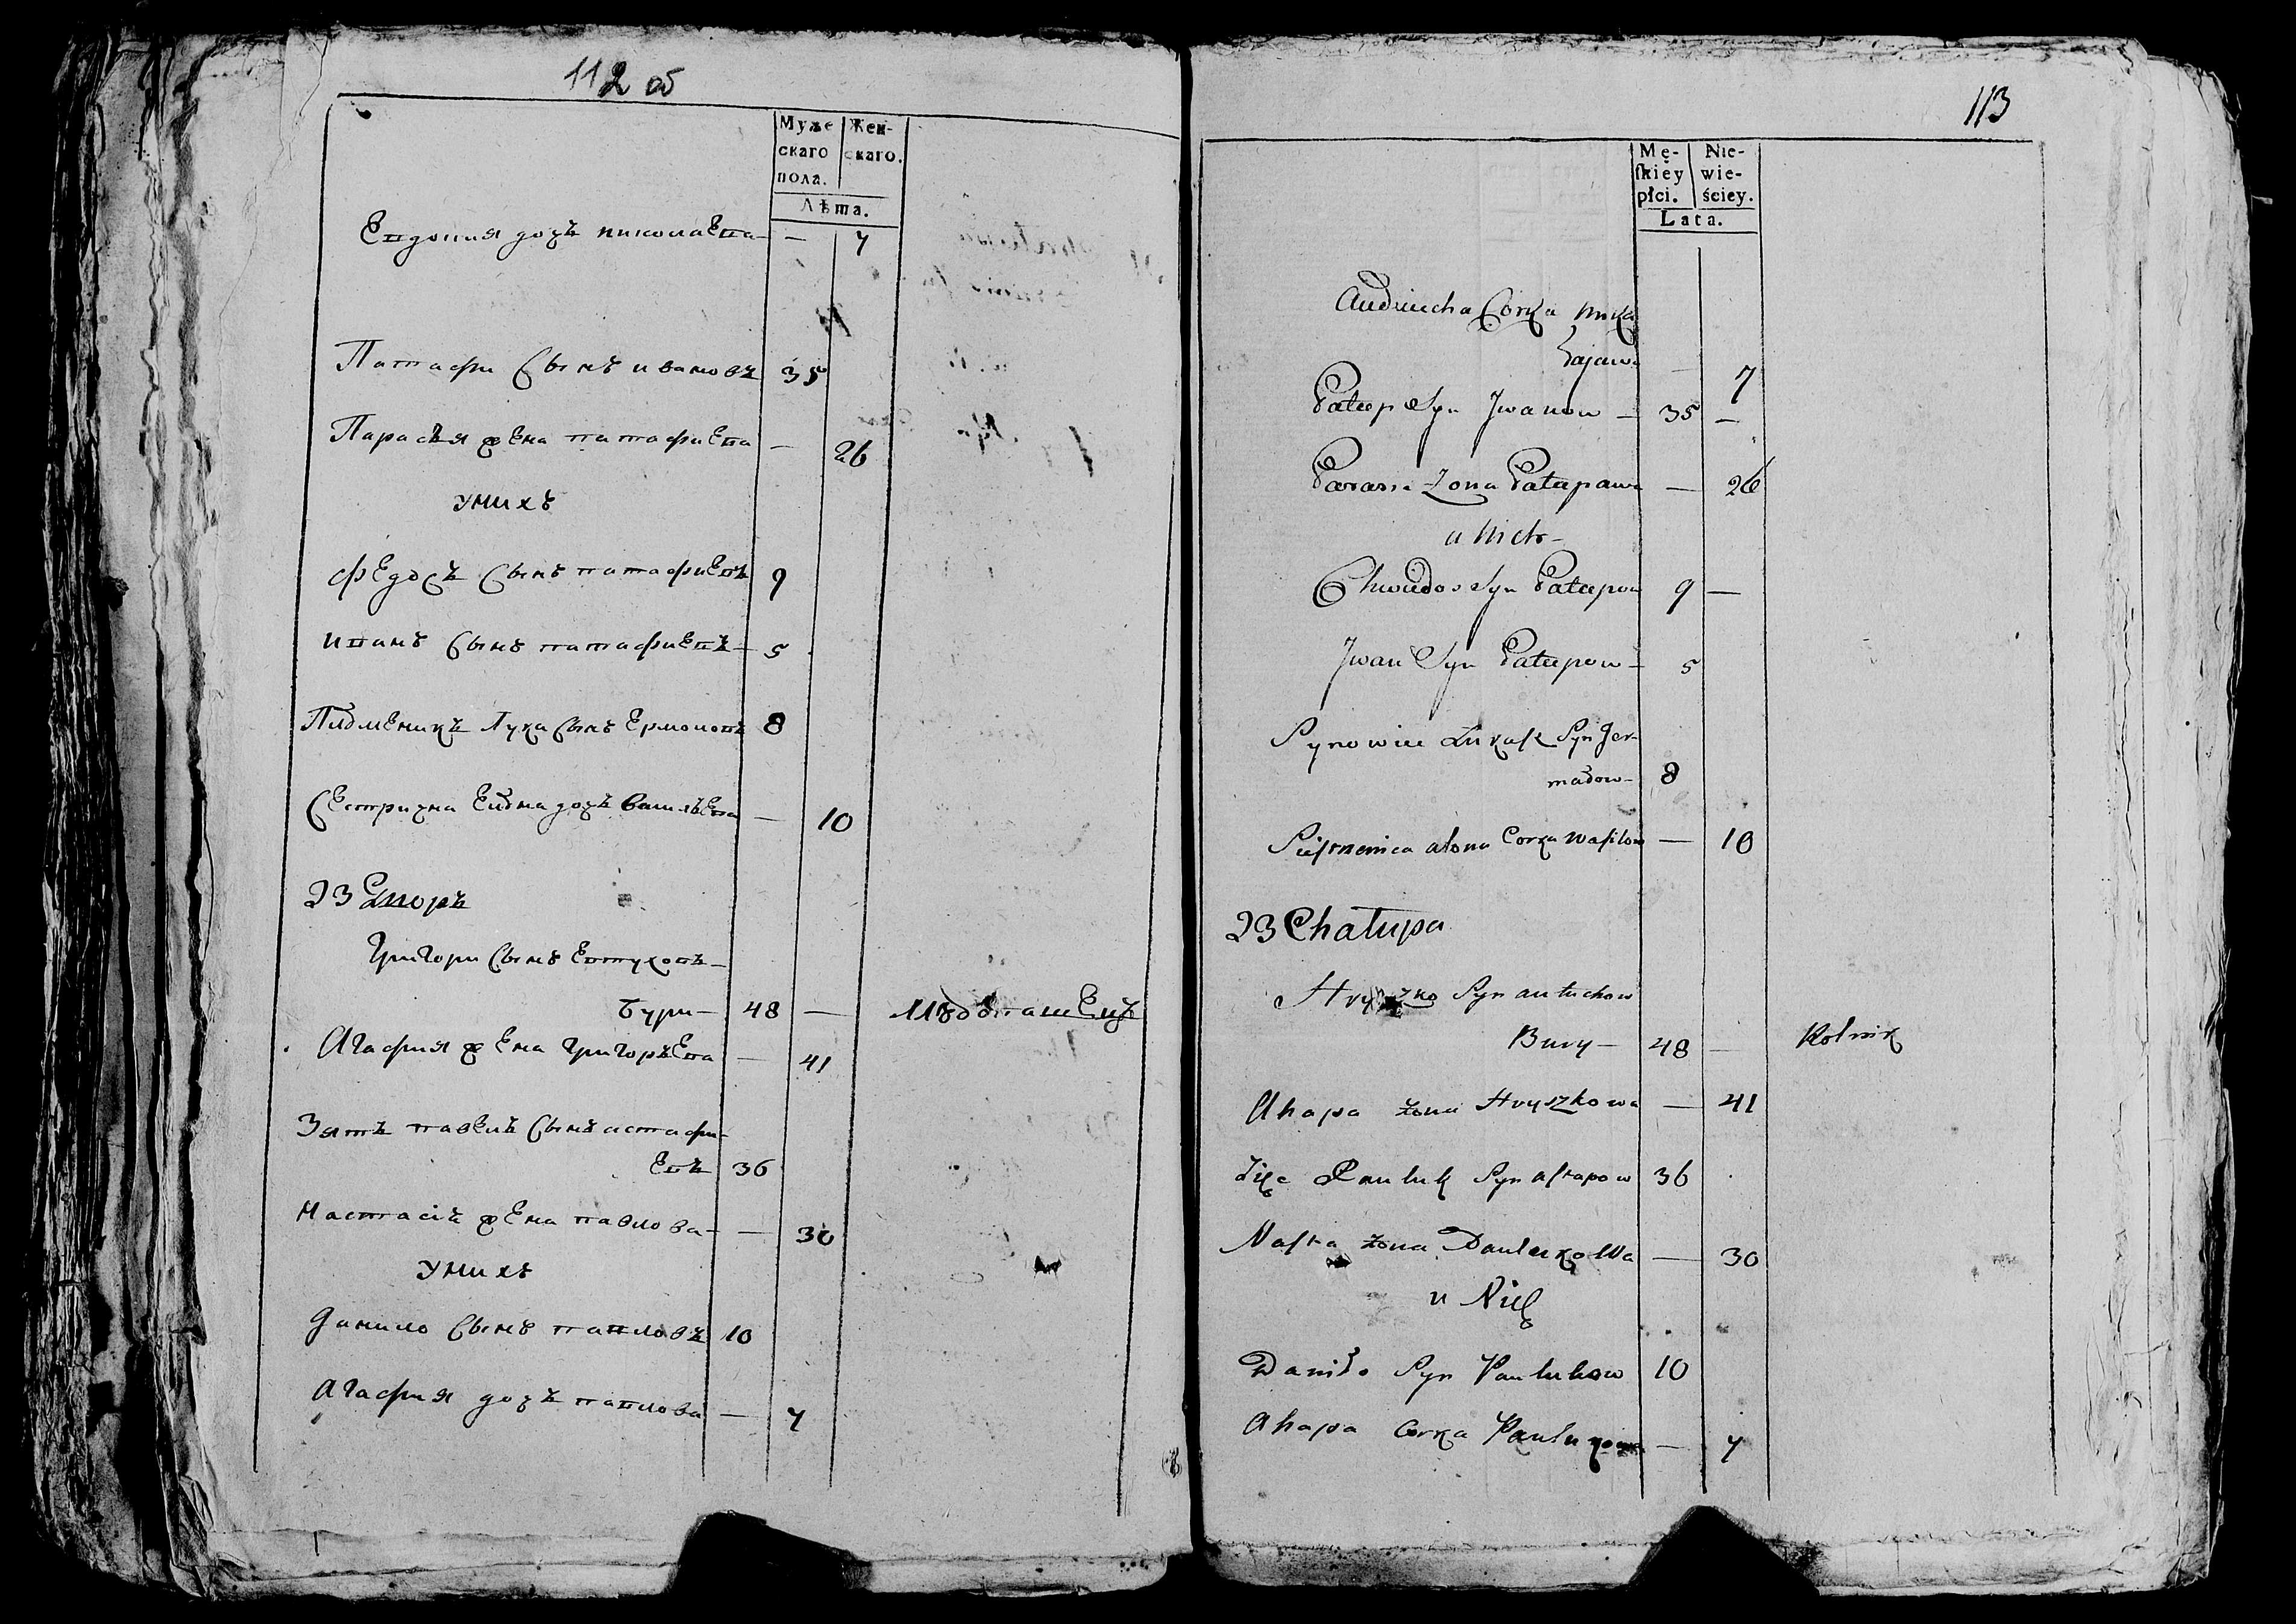 112 об
Муже Жен-
скаго скаго.
пола.
Лѣта.
Евдокия дочъ николаева - — 7
Патафи Сынъ ивановъ 35
Парасъя жена патафиева — 26
У нихъ
Федосъ Сынъ патафиевъ 9
иванъ Сынъ патафиевъ - 5
Лука Сынъ Ермоловъ 8
дочъ Василъева — 10
23 Дворъ
Григори Сынъ Евтуховъ -
Бури - 48 —
Агафия жена Григоръева — 41
Зятъ павелъ Сынъ астафи-
евъ 36
Настасія жена павлова - — 30
У нихъ
Данило Сынъ павловъ 10
Агафия дочъ павлова — 7
113
Mę- Nie-
ſkiey wie-
płci. ściey.
Lata.
Corka Mika
łajawa — 7
Patap Syn Jwanow - 35 —
Parasia Żona Patapawa — 26
u Nich -
Chwiedos Syn Patapow 9 —
Jwan Syn Patapow - 5
Synowiec Łukaſz Syn Jer-
małow - 8
Siestrzenica alona Corka Wasilow — 10
23 Chałupa
Hryszko Syn autuchow
Bury - 48 — Rolnik
Ahapa żona Hryszkowa — 41
Zięć Pauluk Syn aſtapow 36
Naſta żona Paulukowa — 30
u Nich
Daniło Syn Paulukow 10
Ahapa Corka Paulukowa — 7